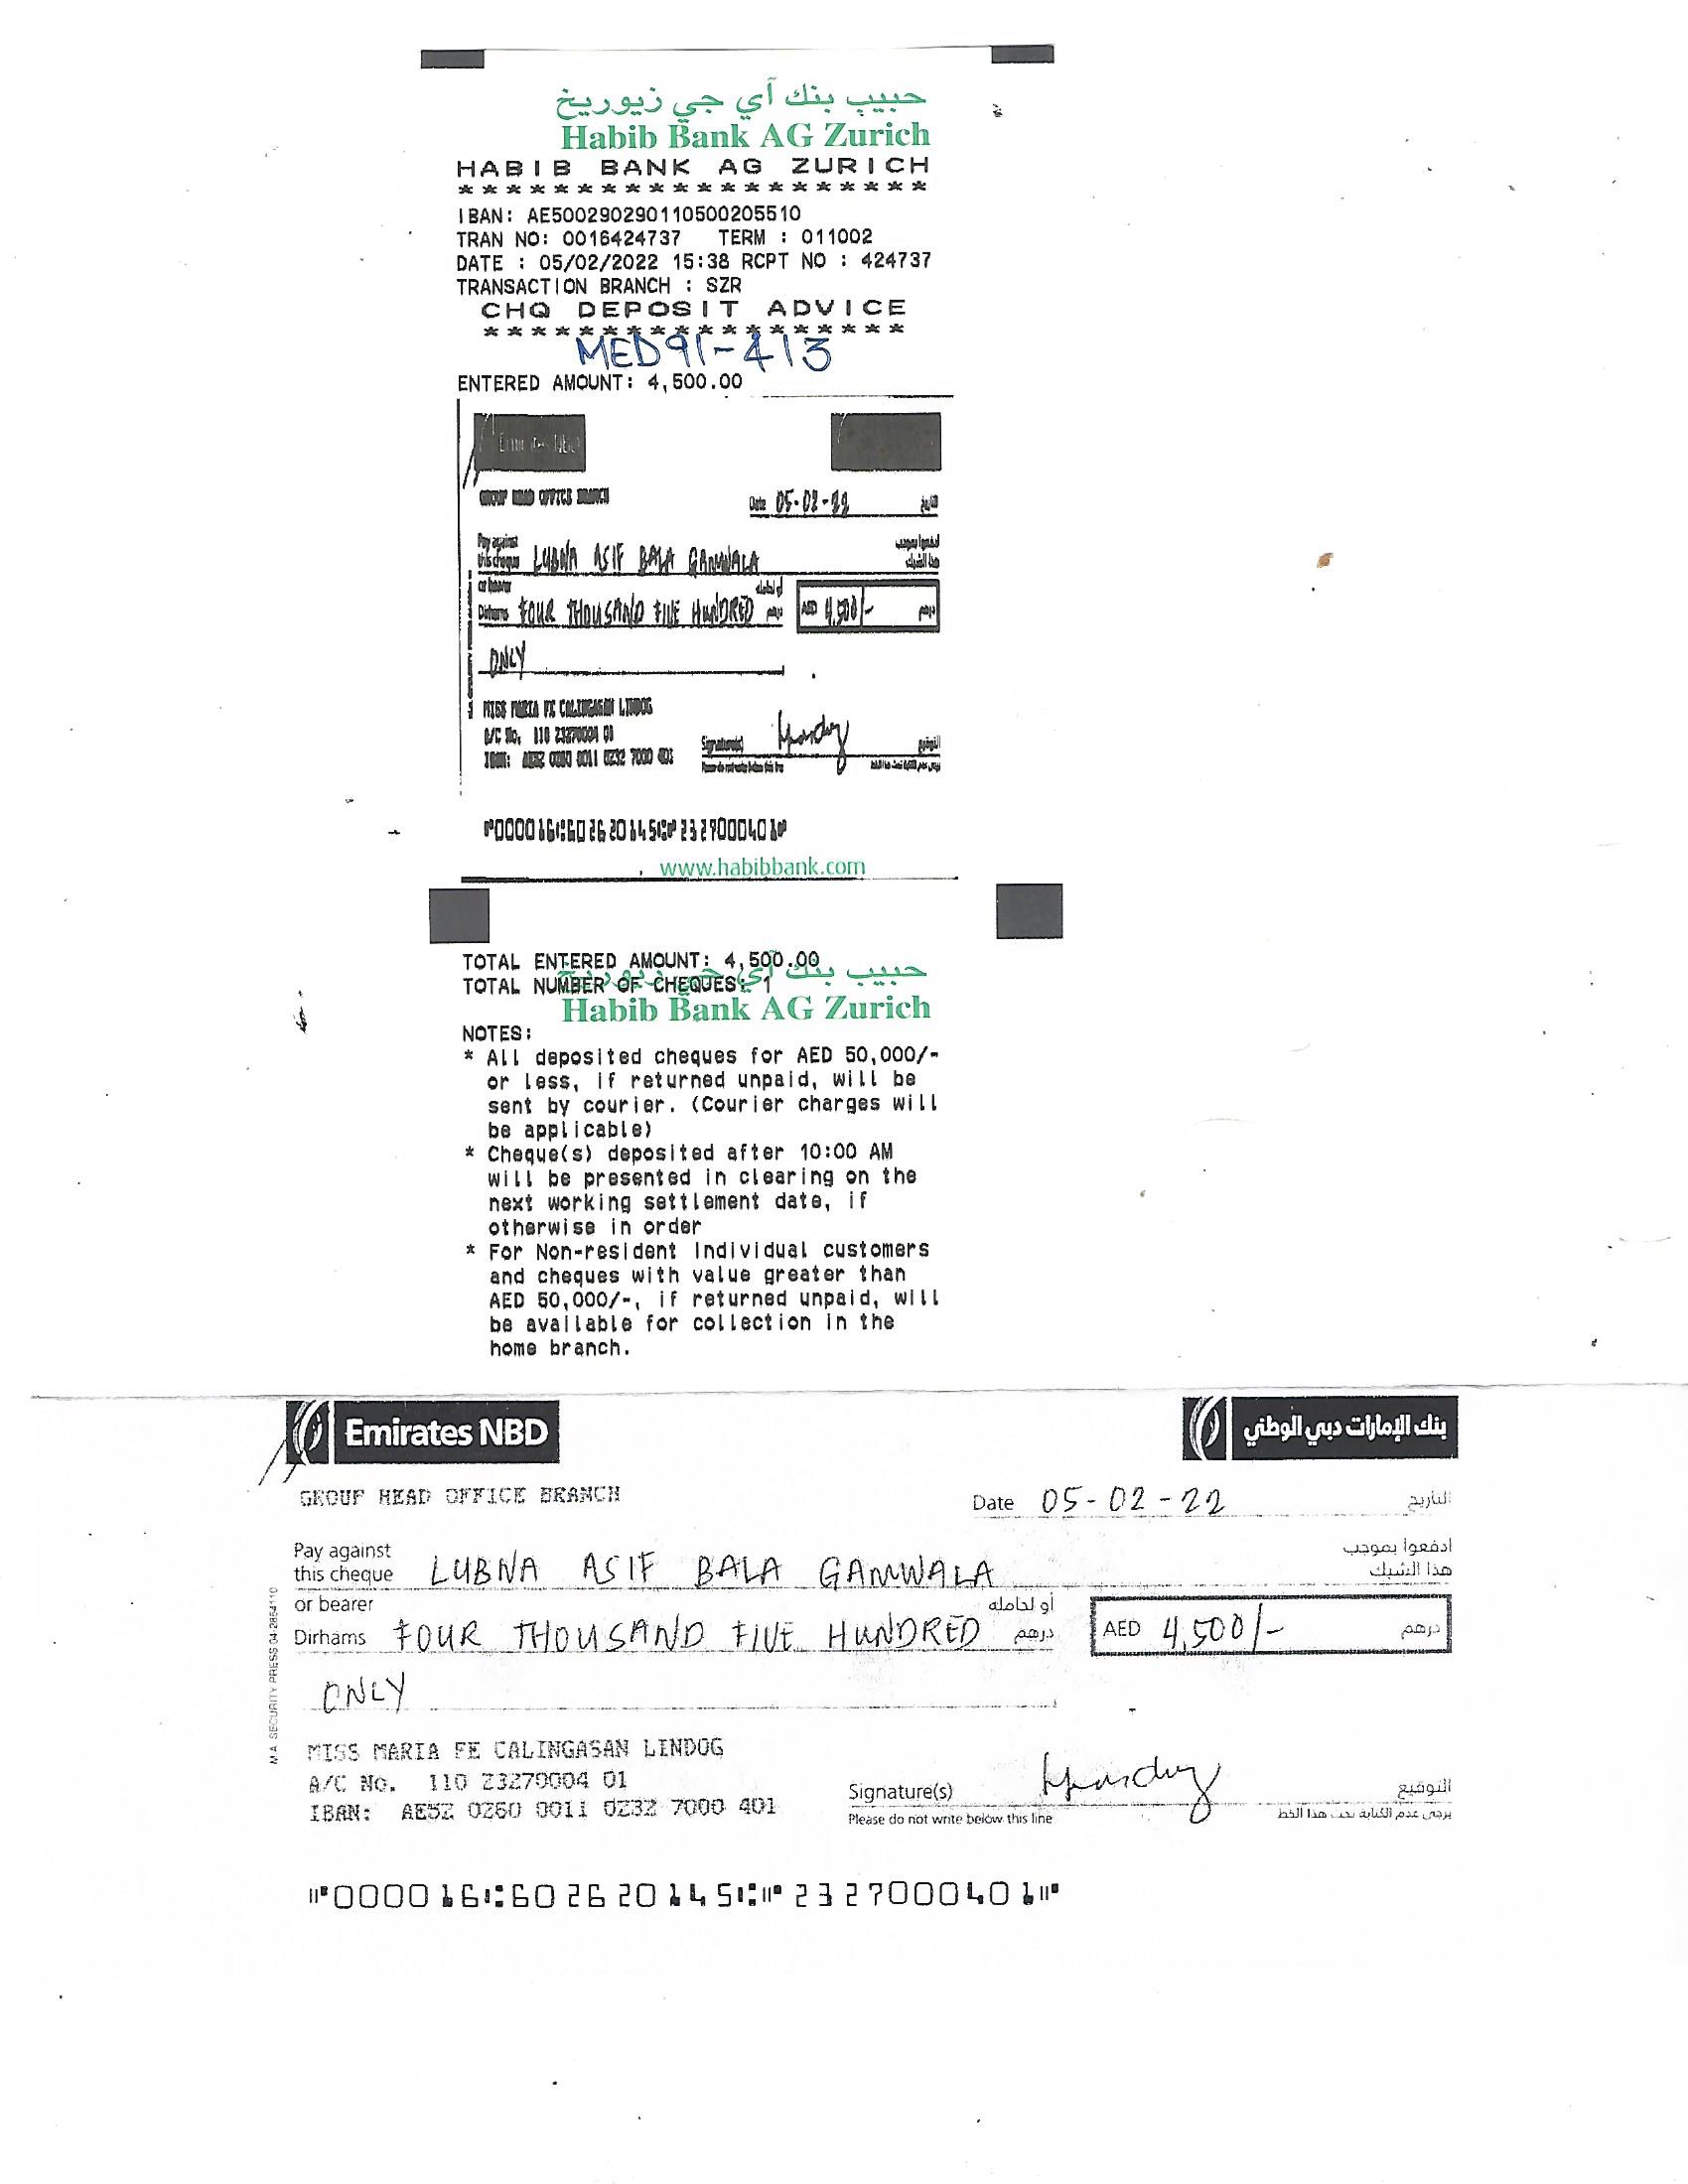 حبيب بنك آي جي زيوريخ
Habib Bank AG Zurich
HABIB BANK AG ZURICH
********************
IBAN: AE500290290110500205510
TRAN NO: 0016424737 TERM : 011002
DATE : 05/02/2022 15:38 RCPT NO : 424737
TRANSACTION BRANCH : SZR
CHQ DEPOSIT ADVICE
******************
MED91-413
ENTERED AMOUNT: 4,500.00
Emirates NBD
GROUP HEAD OFFICE BRANCH
Date 05-02-22 التاريخ
Pay against ادفعوا بموجب
this cheque LUBNA ASIF BALA GAMWALA هذا الشيك
or bearer أو لحامله
Dirhams FOUR THOUSAND FIVE HUNDRED درهم AED 4,500/- درهم
ONLY
MISS MARIA FE CALINGASAN LINDOG
A/C No. 110 23270004 01
IBAN: AE52 0260 0011 0232 7000 401
Signature(s) التوقيع
Please do not write below this line يرجى عدم الكتابة تحت هذا الخط
⑈000016⑆602620145⑆⑈232700040 1⑈
www.habibbank.com
TOTAL ENTERED AMOUNT: 4,500.00
حبيب بنك آي جي زيوريخ
TOTAL NUMBER OF CHEQUES: 1
Habib Bank AG Zurich
NOTES:
* All deposited cheques for AED 50,000/-
or less, if returned unpaid, will be
sent by courier. (Courier charges will
be applicable)
* Cheque(s) deposited after 10:00 AM
will be presented in clearing on the
next working settlement date, if
otherwise in order
* For Non-resident Individual customers
and cheques with value greater than
AED 50,000/-, if returned unpaid, will
be available for collection in the
home branch.
Emirates NBD بنك الإمارات دبي الوطني
GROUP HEAD OFFICE BRANCH
Date 05-02-22 التاريخ
Pay against ادفعوا بموجب
this cheque LUBNA ASIF BALA GAMWALA هذا الشيك
or bearer أو لحامله
Dirhams FOUR THOUSAND FIVE HUNDRED درهم AED 4,500/- درهم
ONLY
M.A. SECURITY PRESS 04-2854110
MISS MARIA FE CALINGASAN LINDOG
A/C No. 110 23270004 01
IBAN: AE52 0260 0011 0232 7000 401
Signature(s) التوقيع
Please do not write below this line يرجى عدم الكتابة تحت هذا الخط
⑈000016⑆602620145⑆⑈232700040 1⑈